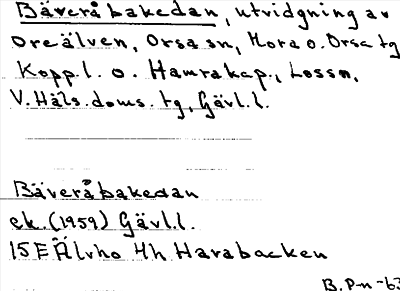 Bäveråbakedan, utvidgning av
Oreälven, Orsa sn, Mora o. Orsa tg
Kopp.l. o. Hamra kap., Lossn,
V. Häls. doms. tg, Gävl.l.
Bäveråbakedan
ek. (1959) Gävl.l.
15E Älvho 4h Havabacken
B.P-n -63